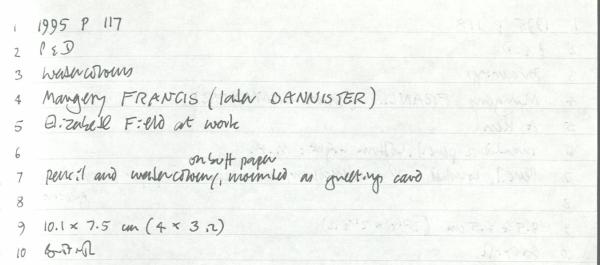 1 1995 P 117
2 P & D
3 watercolours
4 Margery FRANCIS (later DANNISTER)
5 Elizabeth Field at work
6
on buff paper
7 pencil and watercolours, mounted as greetings card
8
9 10.1 x 7.5 cm (4 x 3 in)
10